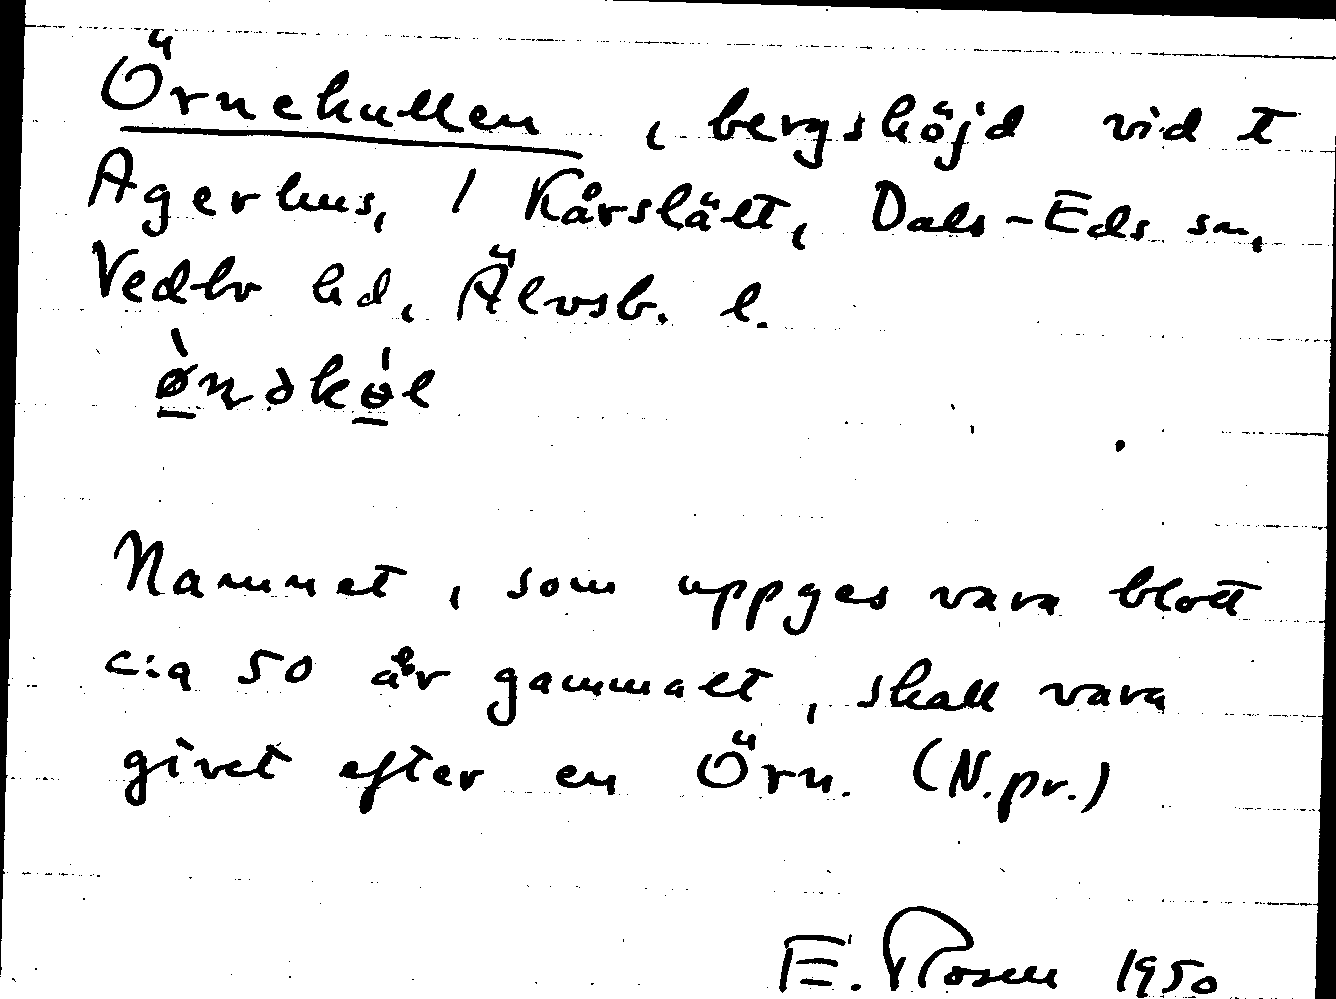 Örnekullen, bergshöjd vid t
Agerhus, / Kårslätt, Dals-Eds sn,
Vedbo hd, Älvsb. l.
ø̀nəkɵ́l
Namnet, som uppges vara blott
c:a 50 år gammalt, skall vara
givet efter en Örn. (N.pr.)
E. Rosén 1950